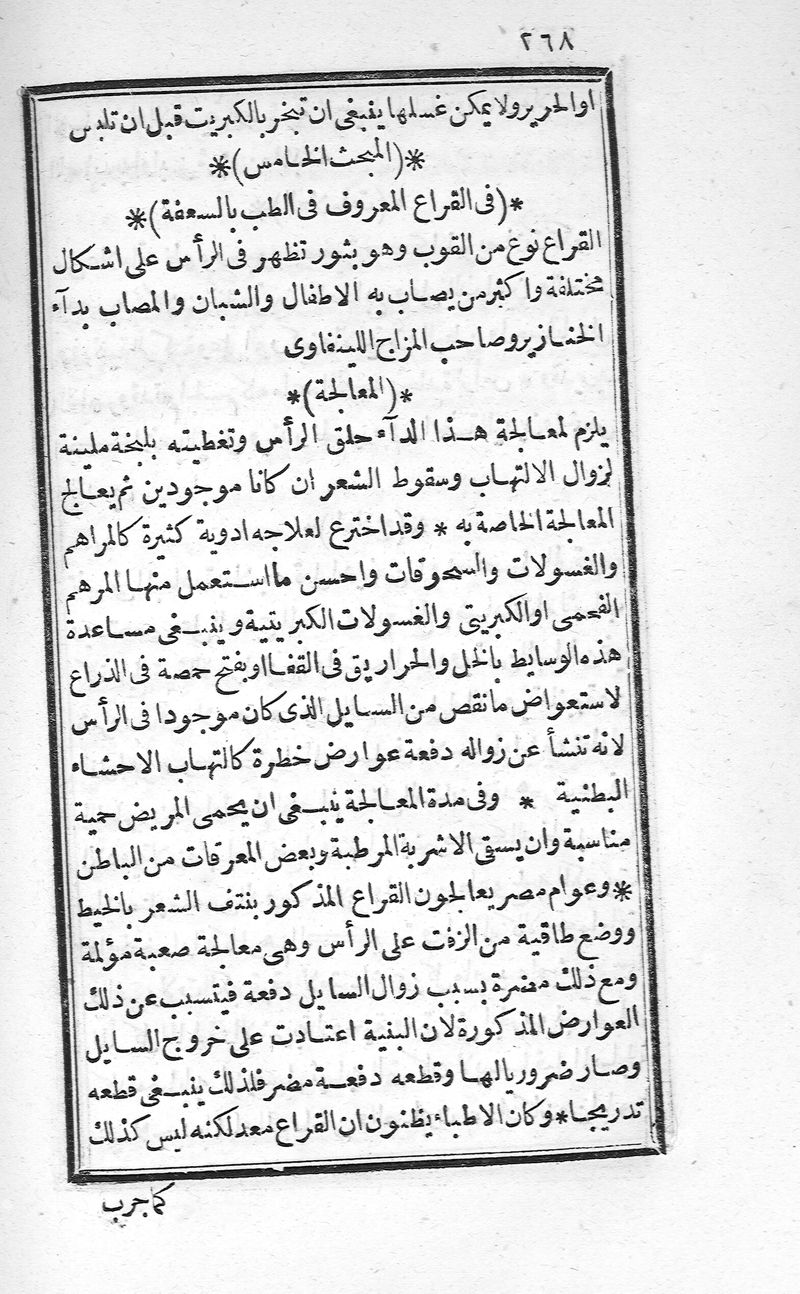 ٢٦٨
او الحرير ولا يمكن غسلها ينبغى ان تبخر بالكبريت قبل ان تلبس
*(المبحث الخامس)*
*(فى القراع المعروف فى الطب بالسعفة)*
القراع نوع من القوب وهو بثور تظهر فى الرأس على اشكال
مختلفة واكثر من يصاب به الاطفال والشبان والمصاب بدآء
الخنازير وصاحب المزاج اللينفاوى
*(المعالجة)*
يلزم لمعالجة هذا الدآء حلق الرأس وتغطيته بلبخة ملينة
لزوال الالتهاب وسقوط الشعر ان كانا موجودين ثم يعالج
المعالجة الخاصة به * وقد اخترع لعلاجه ادوية كثيرة كالمراهم
والغسولات والسحوقات واحسن ما استعمل منها المرهم
الفحمى او الكبريتى والغسولات الكبريتية وينبغى مساعدة
هذه الوسايط بالخل والحراريق فى القفا او بفتح حمصة فى الذراع
لاستعواض ما نقص من السايل الذى كان موجودا فى الرأس
لانه تنشأ عن زواله دفعة عوارض خطرة كالتهاب الاحشاء
البطنية * وفى مدة المعالجة ينبغى ان يحمى المريض حمية
مناسبة وان يسقى الاشربة المرطبة وبعض المعرقات من الباطن
* وعوام مصر يعالجون القراع المذكور بنتف الشعر بالخيط
ووضع طاقية من الزفت على الرأس وهى معالجة صعبة مؤلمة
ومع ذلك مضرة بسبب زوال السايل دفعة فيتسبب عن ذلك
العوارض المذكورة لان البنية اعتادت على خروج السايل
وصار ضروريا لها وقطعه دفعة مضر فلذلك ينبغى قطعه
تدريجا * وكان الاطباء يظنون ان القراع معد لكنه ليس كذلك
كما جرب